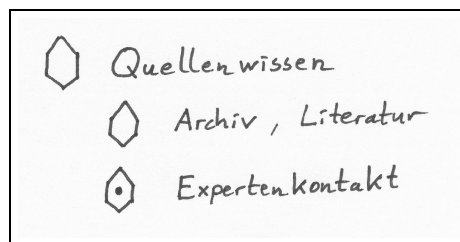 Quellenwissen
Archiv, Literatur
Expertenkontakt